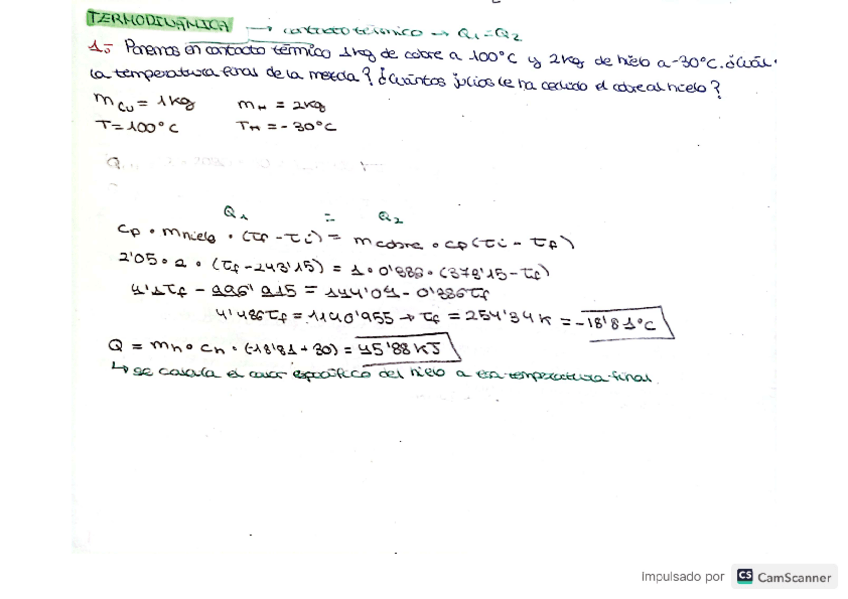 TERMODINÁMICA → contacto térmico → Q₁=Q₂
1.- Ponemos en contacto térmico 1kg de cobre a 100°C y 2kg de hielo a -30°C. ¿Cuál
la temperatura final de la mezcla? ¿Cuántos julios le ha cedido el cobre al hielo?
m Cu = 1kg m H = 2kg
T = 100°C T H = -30°C
Q₁ = Q₂
Cp · m hielo · (Tf - Ti) = m cobre · Cp (Ti - Tf)
2'05 · 2 · (Tf - 243'15) = 1 · 0'386 · (373'15 - Tf)
4'1Tf - 996'915 = 144'04 - 0'386Tf
4'486Tf = 1140'955 → Tf = 254'34 K = -18'81°C
Q = m h · C h · (-18'81 + 30) = 45'88 KJ
↳ se calcula el calor específico del hielo a esa temperatura final
Impulsado por CS CamScanner